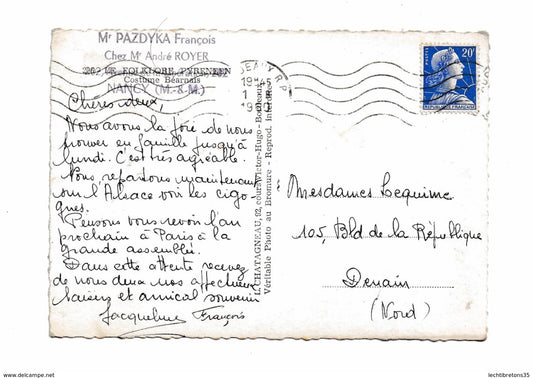 Mr PAZDYKA François
Chez Mr André ROYER
202, LE FOLKLORE PYRÉNÉEN
Costume Béarnais
NANCY (M.-&-M.)
Chères deux,
Nous avons la joie de nous
trouver en famille jusqu'à
lundi. C'est très agréable.
Nous repartons maintenant
sur l'Alsace voir les cigo-
gnes.
Pensons vous revoir l'an
prochain à Paris à la
grande assemblée.
Dans cette attente recevez
de nous deux nos affectueux
baisers et amical souvenir
Jacqueline François
CHATAGNEAU, 92, cours Victor-Hugo - Bordeaux
Véritable Photo au Bromure - Reprod. Interdite
19 45
1
20F
POSTES
REPUBLIQUE FRANÇAISE
Mesdames Lequime
105, Bld de la République
Denain
(Nord)
delcampe.net
lechtibretons35